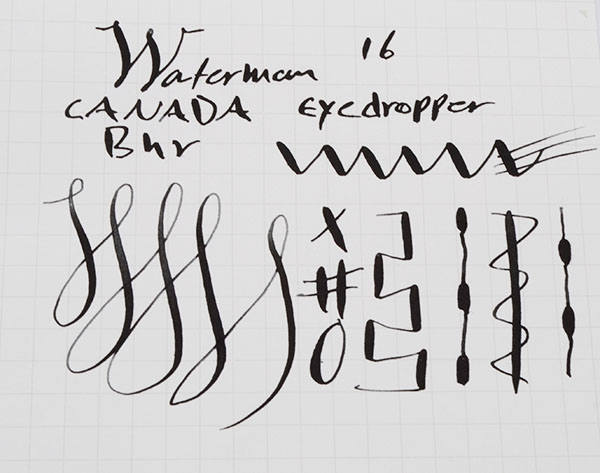 Waterman 16
CANADA Eyedropper
Bhr
X
#
O